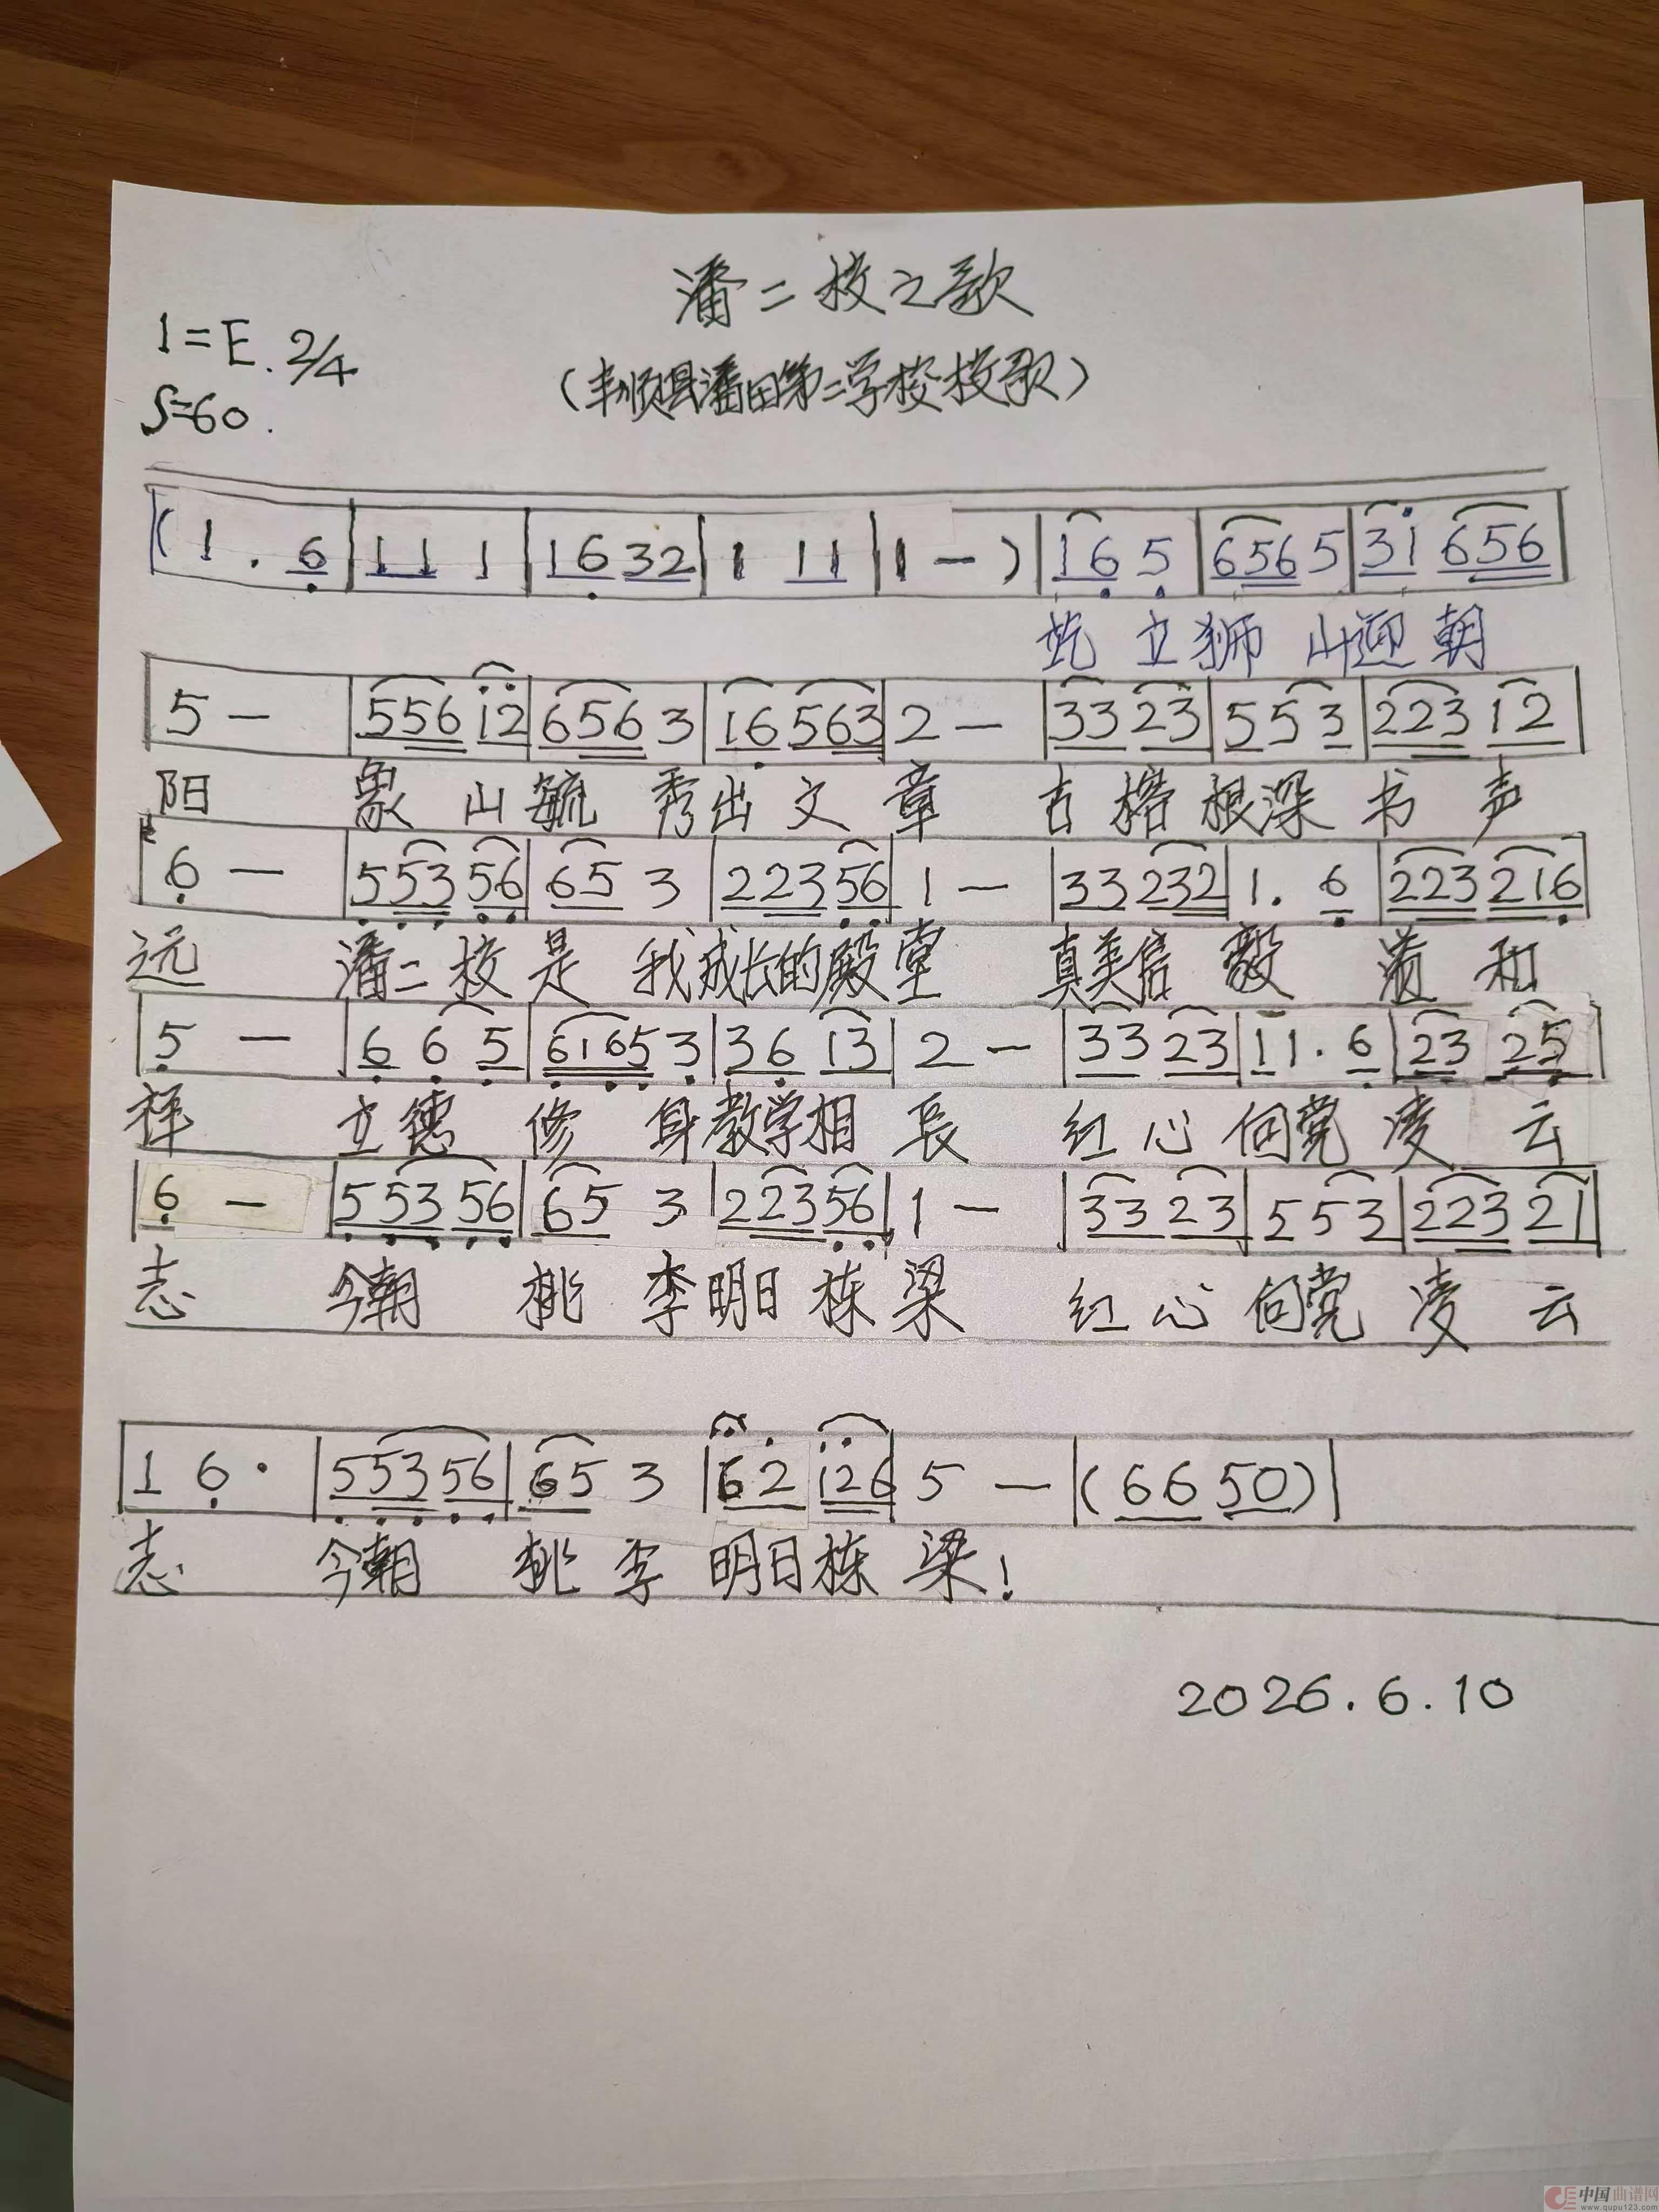 潘二校之歌
1=E. 2/4
(丰顺县潘田第二学校校歌)
S=60.
(1. 6|11 1|1632|1 11|1—)|16 5|6565|31 656|
屹立狮山迎朝
5—|556 12|656 3|16 563|2—|33 23|55 3|223 12|
阳 象山毓秀出文章 古榕根深书声
6—|553 56|65 3|223 56|1—|33 232|1. 6|223 216|
远 潘二校是我成长的殿堂 真美信毅 和
5—|6 6 5|6165 3|36 13|2—|33 23|11. 6|23 25|
祥 立德修身教学相長 红心向党凌云
6—|553 56|65 3|223 56|1—|33 23|55 3|223 21|
志 今朝桃李明日栋梁 红心向党凌云
1 6·|553 56|65 3|62 126|5—|(66 50)|
志 今朝桃李明日栋梁!
2026.6.10
中国曲谱网
www.qupu123.com